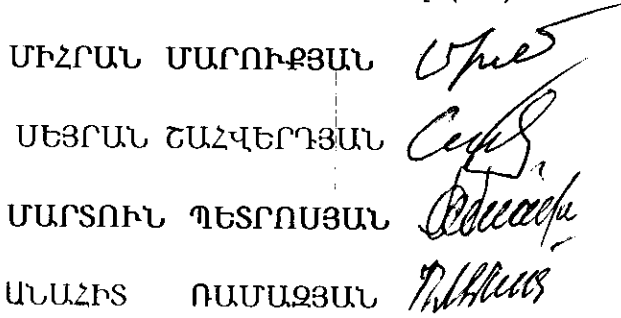 ՄԻՀՐԱՆ ՄԱՐՈՒՔՅԱՆ
ՍԵՅՐԱՆ ՇԱՀՎԵՐԴՅԱՆ
ՄԱՐՏՈՒՆ ՊԵՏՐՈՍՅԱՆ
ԱՆԱՀԻՏ ՌԱՄԱԶՅԱՆ